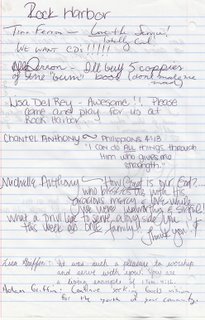 Rock Harbor
Tina Ferron - Love the Jesus!
Totally Cool!
WE WANT CD's!!!!!
Ferron - I'll buy 5 coppies
of the "bum" book (don't make me
mad)
Lisa Del Rey - Awesome!! Please
come and play for us at
Rock Harbor
Chantel Anthony ~ Philippians 4:13
"I can do ALL things through
Him who gives me
strength."
Michelle Anthony ~ How Good is our God?...
who blesses us with His
gracious mercy & love while
we were wandering & sinful!
What a thrill it was to serve along side you
this week as ONE family!!
Thank you!
It was such a pleasure to worship
and serve with you! You are
a living example of
Adam Griffin: Continue seeking God's
for the youth of your community.